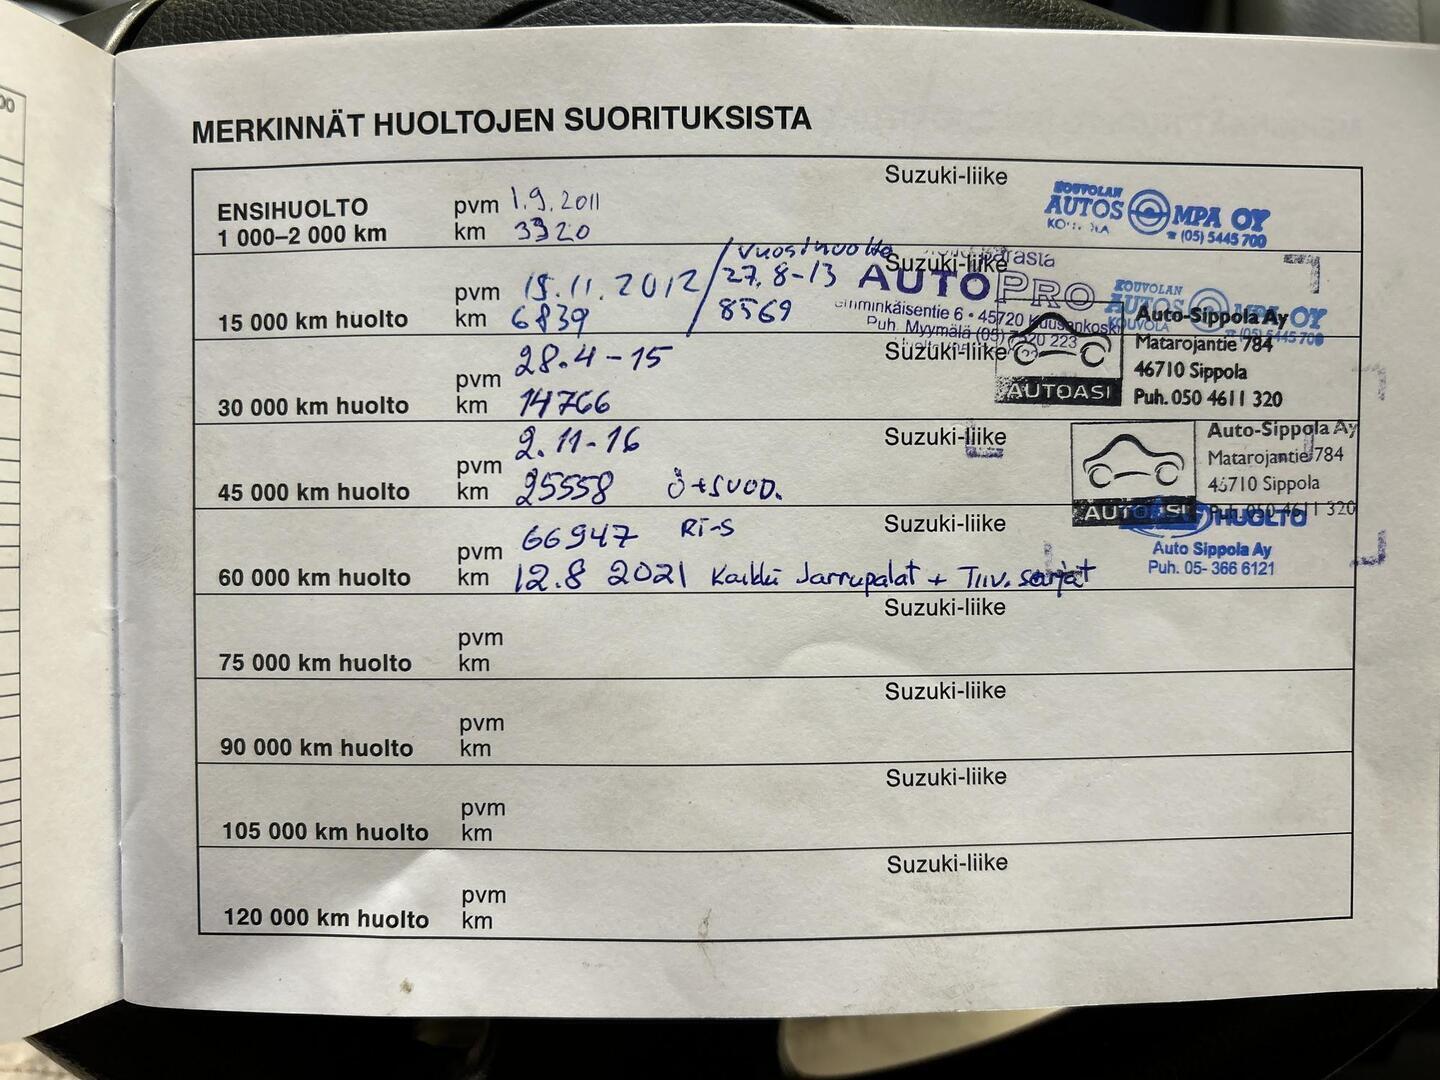 MERKINNÄT HUOLTOJEN SUORITUKSISTA
Suzuki-liike
ENSIHUOLTO
1 000–2 000 km
pvm 1.9.2011
km 3320
KOUVOLAN
AUTOSOMPA OY
(05) 5445 700
Suzuki-liike
15 000 km huolto
pvm 15.11.2012 / vuosihuolto 27.8-13
km 6839 / 8569
AUTOPRO
45720 Kuusankoski
Puh. Myymälä (05)
KOUVOLAN
AUTOSOMPA OY
KOUVOLA
(05) 5445 700
Suzuki-liike
30 000 km huolto
pvm 28.4-15
km 14766
AUTOASI
Auto-Sippola Ay
Matarojantie 784
46710 Sippola
Puh. 050 4611 320
Suzuki-liike
45 000 km huolto
pvm 2.11-16
km 25558 Ö+SUOD.
AUTOASI
Auto-Sippola Ay
Matarojantie 784
46710 Sippola
Puh. 050 4611 320
Suzuki-liike
60 000 km huolto
pvm 66947 RT-S
km 12.8 2021 Kaikki Jarrupalat + Tiiv. sarjat
HUOLTO
Auto Sippola Ay
Puh. 05- 366 6121
Suzuki-liike
75 000 km huolto
pvm
km
Suzuki-liike
90 000 km huolto
pvm
km
Suzuki-liike
105 000 km huolto
pvm
km
Suzuki-liike
120 000 km huolto
pvm
km